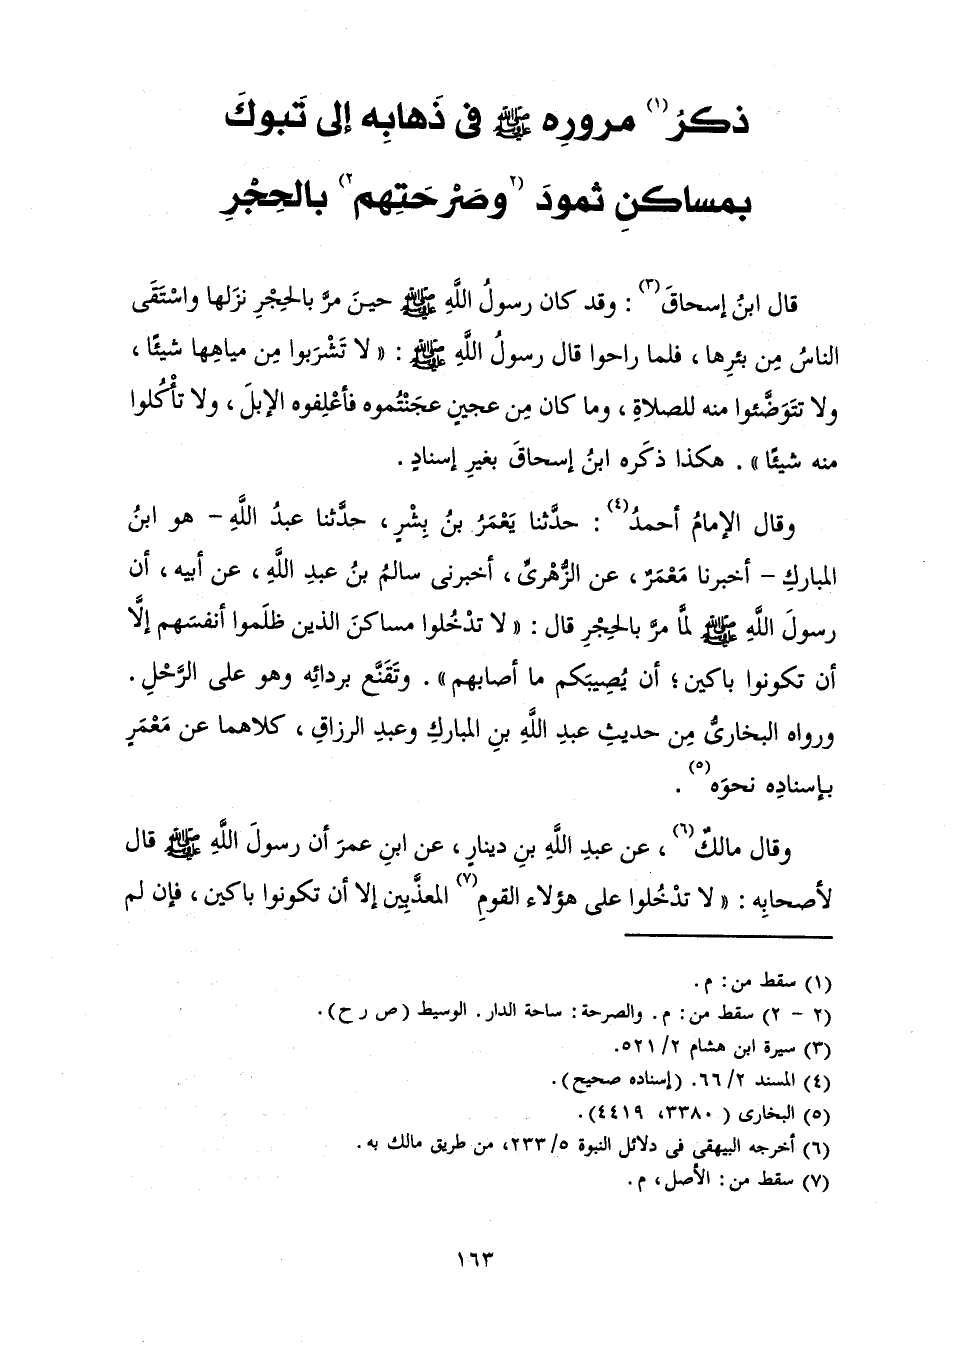 ذكرُ(١) مرورِه ﷺ فى ذَهابِه إلى تَبوكَ
بمساكنِ ثمودَ (٢وصَرْحَتِهم٢) بالحِجْرِ
قال ابنُ إسحاقَ(٣) : وقد كان رسولُ اللَّهِ ﷺ حينَ مرَّ بالحِجْرِ نزَلها واسْتَقَى
الناسُ مِن بئرِها ، فلما راحوا قال رسولُ اللَّهِ ﷺ : « لا تَشْرَبوا مِن مياهِها شيئًا ،
ولا تتَوَضَّئوا منه للصلاةِ ، وما كان مِن عجينٍ عجَنْتُموه فأعْلِفوه الإبلَ ، ولا تأْكُلوا
منه شيئًا » . هكذا ذكَره ابنُ إسحاقَ بغيرِ إسنادٍ .
وقال الإمامُ أحمدُ(٤) : حدَّثنا يَعْمَرُ بنُ بِشْرٍ ، حدَّثنا عبدُ اللَّهِ - هو ابنُ
المباركِ - أخبرنا مَعْمَرٌ ، عن الزُّهْرىِّ ، أخبرنى سالمُ بنُ عبدِ اللَّهِ ، عن أبيه ، أن
رسولَ اللَّهِ ﷺ لمَّا مرَّ بالحِجْرِ قال : « لا تدْخُلوا مساكنَ الذين ظلَموا أنفسَهم إلَّا
أن تكونوا باكين ؛ أن يُصِيبَكم ما أصابهم » . وتَقَنَّع بردائِه وهو على الرَّحْلِ .
ورواه البخارىُّ مِن حديثِ عبدِ اللَّهِ بنِ المباركِ وعبدِ الرزاقِ ، كلاهما عن مَعْمَرٍ
بإسنادِه نحوَه(٥) .
وقال مالكٌ(٦) ، عن عبدِ اللَّهِ بنِ دينارٍ ، عن ابنِ عمرَ أن رسولَ اللَّهِ ﷺ قال
لأصحابِه : « لا تدْخُلوا على هؤلاء القومِ(٧) المعذَّبِين إلا أن تكونوا باكين ، فإن لم
(١) سقط من : م .
(٢ - ٢) سقط من : م . والصرحة : ساحة الدار . الوسيط ( ص ر ح ) .
(٣) سيرة ابن هشام ٢/ ٥٢١.
(٤) المسند ٢/ ٦٦. (إسناده صحيح) .
(٥) البخارى ( ٣٣٨٠، ٤٤١٩) .
(٦) أخرجه البيهقى فى دلائل النبوة ٥/ ٢٣٣، من طريق مالك به .
(٧) سقط من : الأصل ، م .
١٦٣